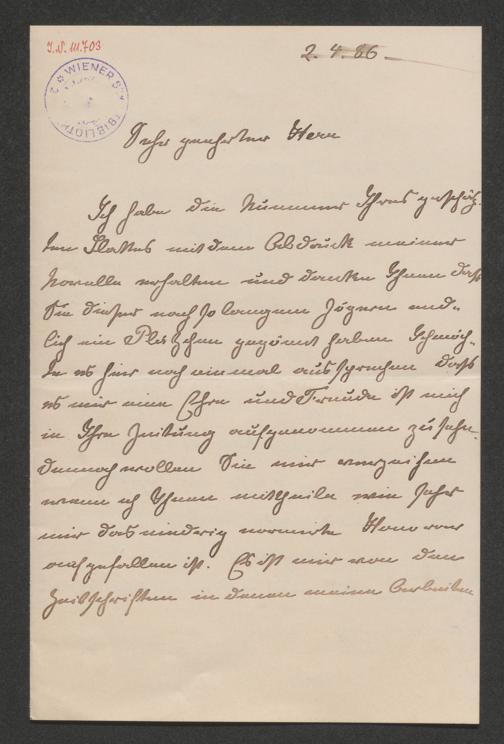 I.N. 111.703
2.4.86.
WIENER STADTBIBLIOTHEK
Sehr geehrter Herr
Ich habe die Nummer Ihres geschätz-
ten Blattes mit dem Abdruck meiner
Novelle erhalten und danke Ihnen daß
Sie dieser nach so langem Zögern end-
lich ein Plätzchen gegönnt haben. Ich möch-
te es hier noch einmal aussprechen daß
es mir eine Ehre und Freude ist mich
in Ihre Zeitung aufgenommen zu sehn.
Dennoch wollen Sie mir verzeihen
wenn ich Ihnen mittheile wie sehr
mir das niedrig normirte Honorar
aufgefallen ist. Es ist mir von den
Zeitschriften in denen meine Arbeiten